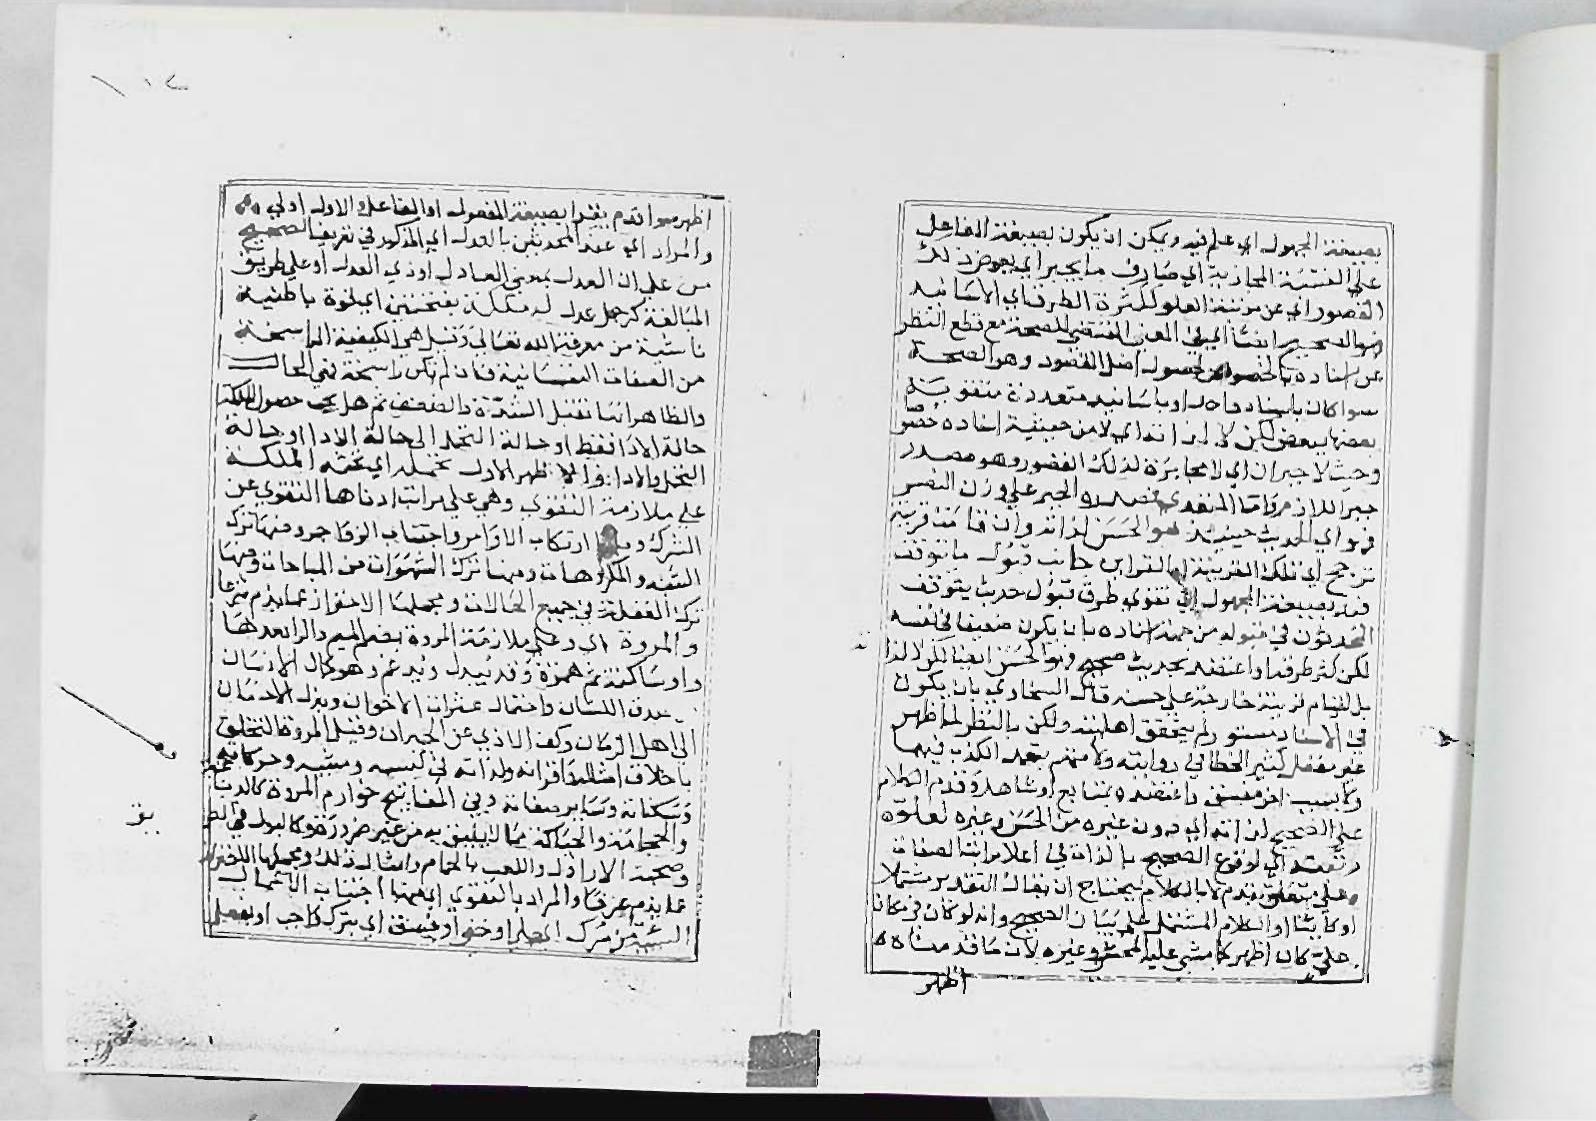 بصيغة المجهول اي علم فيه ويمكن ان يكون بصيغة الفاعل
علي النسبة المجازية اي صارف ما يجبر اي يعوض ذلك
القصور اي عن مرتبة العلو ككثرة الطرق اي الاسانيد
فهو الصحيح ايضا اي في المعني المقتضي للصحة مع قطع النظر
عن اسناده بالخصوص لحصول اصل المقصود وهو الصحة
سوا كان باسناد واحد او باسانيد متعددة متقوية
بعضها ببعض لكن لا لذاته اي لا من حيثية اسناده خصوصا
وحيث لا جبران اي لا مجابرة لذلك القصور وهو مصدر
جبر اللازم واما المتعدي فمصدره الجبر علي وزن النصر
فهو اي الحديث حينئذ هو الحسن لذاته وان قامت قرينة
ترجح اي تلك القرينة او القراين جانب قبول ما يتوقف
فيه بصيغة المجهول اي تقوي طرق قبول حديث يتوقف
المحدثون في قبوله من جهة اسناده بان يكون ضعيفا في نفسه
لكن كثر طرقه او اعتضد بحديث صحيح فهو الحسن ايضا لكن لا لذاته
بل لقيام قرينة خارجة علي حسنه قال السخاوي بان يكون
في الاسناد مستور لم يتحقق اهليته ولكن بالنظر لما ظهر
غير مغفل كثير الخطا في روايته ولا متهم بتعمد الكذب فيها
ولا ينسب الي مفسق واعتضد بمتابع او شاهد وقدم الكلام
علي الصحيح لذاته اي دون غيره من الحسن وغيره لعلو
رتبته اي لوقوع الصحيح بالذات في اعلا مراتب الصفات
وعلي متعلق بقدم لا بالكلام ليحتاج ان يقال التقدير مشتملا
او كاينا او الكلام المشتمل علي بيان الصحيح وانه لو كان في مكان
علي كان اظهر كما مشي عليه المحشي وغيره لان ما قدمناه
اظهر
اظهر سوا قدم يقرا بصيغة المفعول او الفاعل والاول اولي
والمراد اي عند المحدثين بالعدل اي المذكور في تعريف الصحيح
من علي ان العدل بمعني العادل او ذي العدل او علي طريق
المبالغة كرجل عدل له ملكة بفتحتين اي قوة باطنية
ناشية من معرفة الله تعالي وقيل هي الكيفية الراسخة
من الصفات النفسانية فان لم تكن راسخة فهي الحال
والظاهر انها تقبل الشدة والضعف ثم هل يجب حصول الملكة
حالة الادا فقط او حالة التحمل الي حالة الادا او حالة
التحمل والادا والاظهر الاول تحمله اي تحثه الملكة
علي ملازمة التقوي وهي علي مراتب ادناها التقوي عن
الشرك ومنها ارتكاب الاوامر واجتناب الزواجر ومنها ترك
الشبه والمكروهات ومنها ترك الشهوات من المباحات ومنها
ترك الغفلة في جميع الحالات ومجملها الاحتراز عما يذم شرعا
والمروة اي وعلي ملازمة المروة بضم الميم والرا بعدها
واو ساكنة ثم همزة وقد تبدل وتدغم وهو كمال الانسان
من صدق اللسان واحتمال عثرات الاخوان وبذل الاحسان
الي اهل الزمان وكف الاذي عن الجيران وقيل المروة التخلق
باخلاق امثاله واقرانه ولداته في لبسه ومشيه وحركاته
وسكناته وساير صفاته وفي المفاتيح خوارم المروة كالدباغة
والحجامة والحياكة مما لا يليق به من غير ضرورة وكالبول في الطريق
وصحبة الاراذل واللعب بالحمام وامثال ذلك ومجملها الاحتراز
عما يذم عرفا والمراد بالتقوي اي هنا اجتناب الاعمال
السيئة من شرك اي جلي او خفي او فسق اي بترك واجب او بفعل